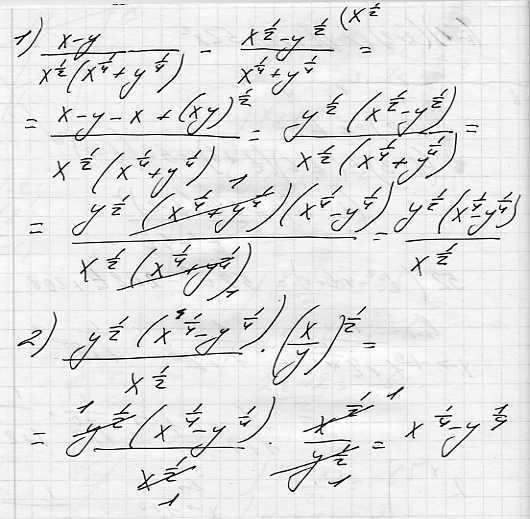 1) (x-y)/(x^(1/2)(x^(1/4)+y^(1/4))) - (x^(1/2)-y^(1/2))/(x^(1/4)+y^(1/4)) (x^(1/2) =
= (x-y-x+(xy)^(1/2))/(x^(1/2)(x^(1/4)+y^(1/4))) = (y^(1/2)(x^(1/2)-y^(1/2)))/(x^(1/2)(x^(1/4)+y^(1/4))) =
= (y^(1/2)(x^(1/4)+y^(1/4))^1(x^(1/4)-y^(1/4)))/(x^(1/2)(x^(1/4)+y^(1/4))_1) = (y^(1/2)(x^(1/4)-y^(1/4)))/(x^(1/2))
2) (y^(1/2)(x^(1/4)-y^(1/4)))/(x^(1/2)) · (x/y)^(1/2) =
= (1 y^(1/2)(x^(1/4)-y^(1/4)))/(x^(1/2) 1) · (x^(1/2) 1)/(y^(1/2) 1) = x^(1/4)-y^(1/4)